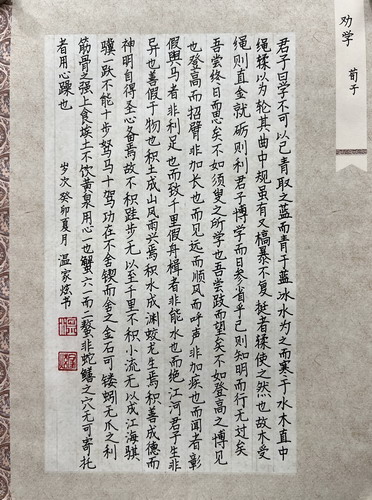 劝学
荀子
君子曰学不可以已青取之蓝而青于蓝冰水为之而寒于水木直中
绳輮以为轮其曲中规虽有又槁暴不复挺者輮使之然也故木受
绳则直金就砺则利君子博学而日参省乎己则知明而行无过矣
吾尝终日而思矣不如须臾之所学也吾尝跂而望矣不如登高之博见
也登高而招臂非加长也而见远而顺风而呼声非加疾也而闻者彰
假舆马者非利足也而致千里假舟楫者非能水也而绝江河君子生非
异也善假于物也积土成山风雨兴焉积水成渊蛟龙生焉积善成德而
神明自得圣心备焉故不积跬步无以至千里不积小流无以成江海骐
骥一跃不能十步驽马十驾功在不舍锲而舍之金石可镂蚓无爪之利
筋骨之强上食埃土下饮黄泉用心一也蟹六一而二螯非蛇鳝之穴无可寄托
者用心躁也 岁次癸卯夏月 温家炫书